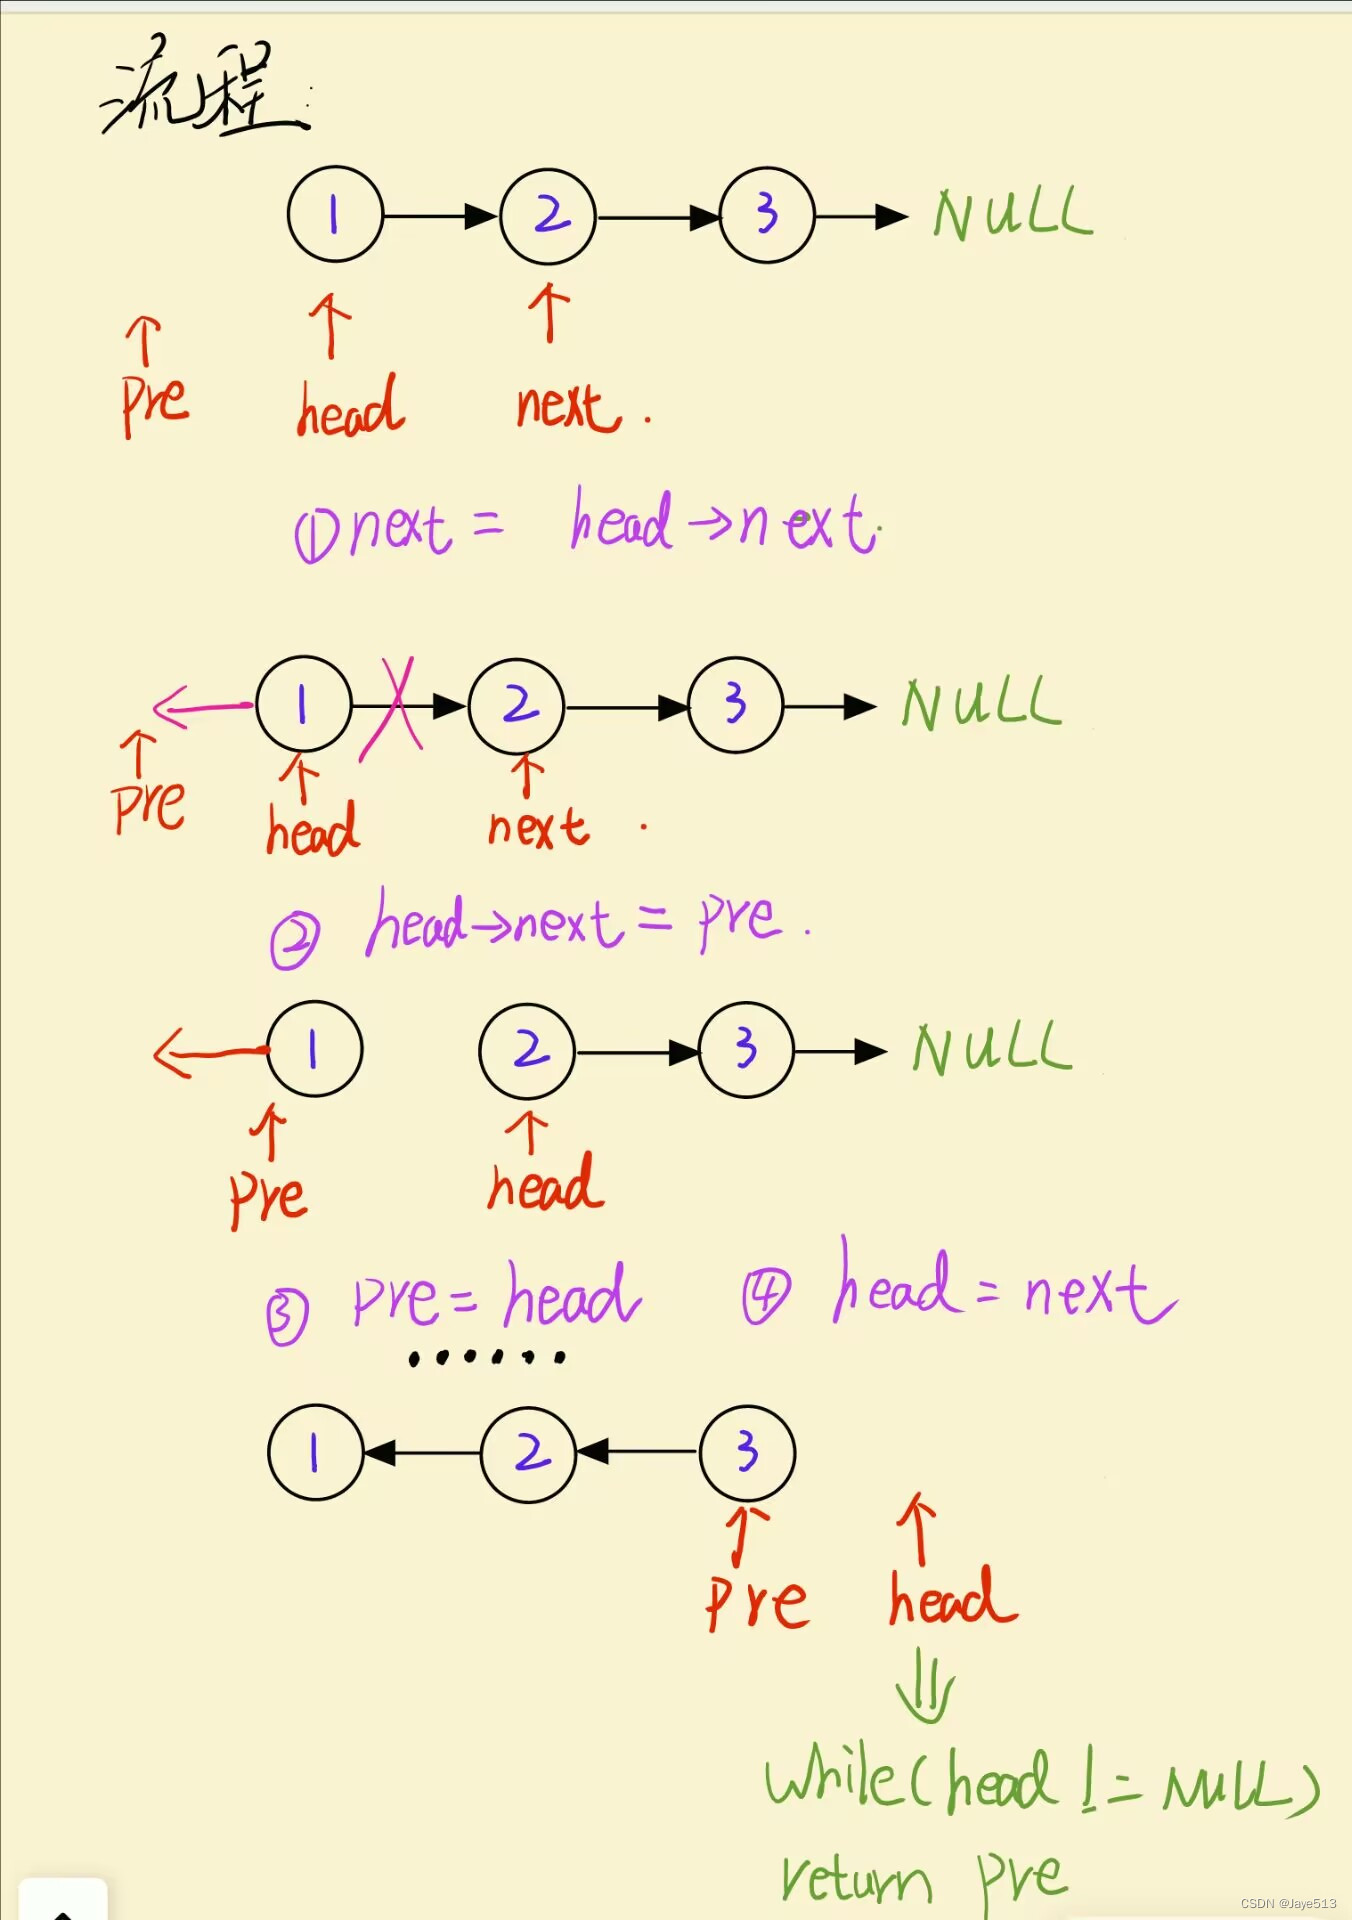 流程:
1 2 3 NULL
pre head next.
①next = head→next.
1 2 3 NULL
pre head next .
② head→next = pre .
1 2 3 NULL
pre head
③ pre = head ④ head = next
......
1 2 3
pre head
while(head != NULL)
return pre
CSDN @Jaye513